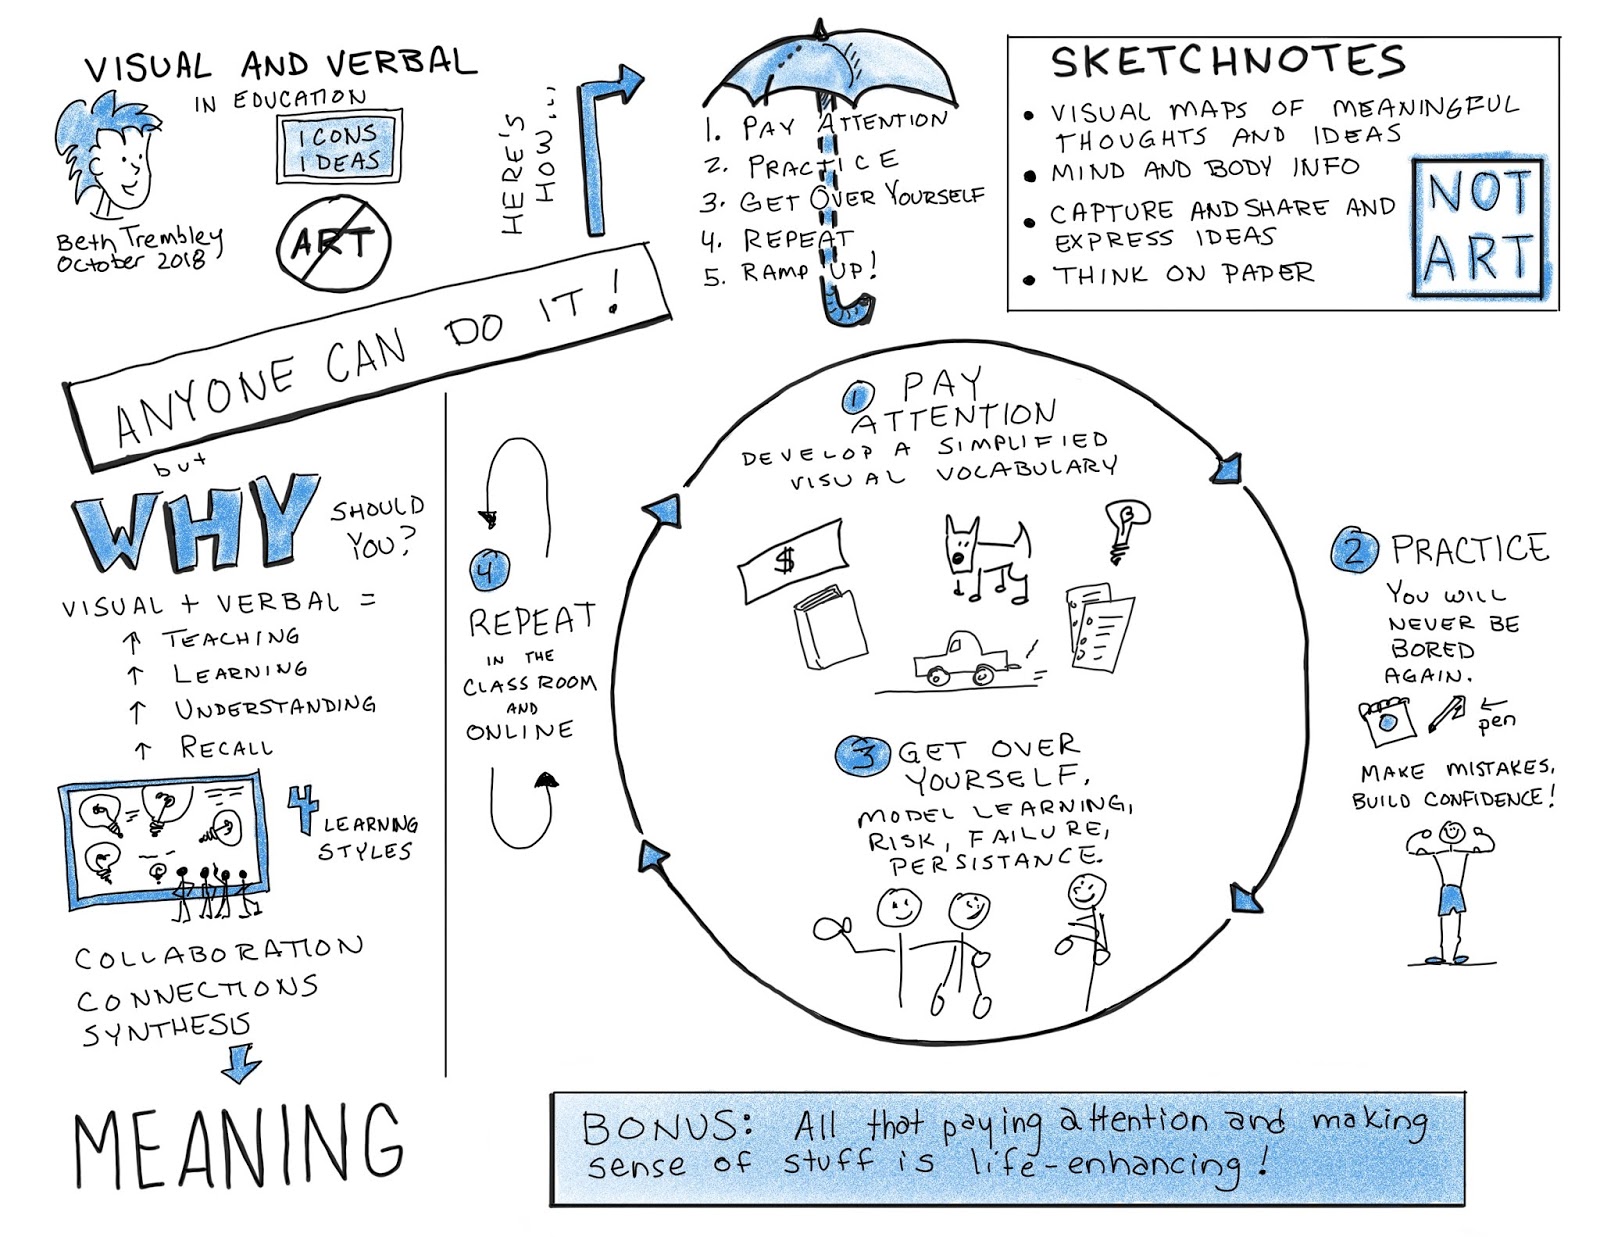 VISUAL AND VERBAL
IN EDUCATION
ICONS
IDEAS
ART
Beth Trembley
October 2018
HERE'S
HOW...
1. PAY ATTENTION
2. PRACTICE
3. GET OVER YOURSELF
4. REPEAT
5. RAMP UP!
SKETCHNOTES
• VISUAL MAPS OF MEANINGFUL
THOUGHTS AND IDEAS
• MIND AND BODY INFO
• CAPTURE AND SHARE AND
EXPRESS IDEAS
• THINK ON PAPER
NOT
ART
ANYONE CAN DO IT!
but
WHY
SHOULD
YOU?
VISUAL + VERBAL =
↑ TEACHING
↑ LEARNING
↑ UNDERSTANDING
↑ RECALL
4 LEARNING
STYLES
COLLABORATION
CONNECTIONS
SYNTHESIS
MEANING
1 PAY
ATTENTION
DEVELOP A SIMPLIFIED
VISUAL VOCABULARY
$
2 PRACTICE
YOU WILL
NEVER BE
BORED
AGAIN.
← pen
MAKE MISTAKES,
BUILD CONFIDENCE!
3 GET OVER
YOURSELF.
MODEL LEARNING,
RISK, FAILURE,
PERSISTANCE.
4
REPEAT
IN THE
CLASSROOM
AND
ONLINE
BONUS: All that paying attention and making
sense of stuff is life-enhancing!